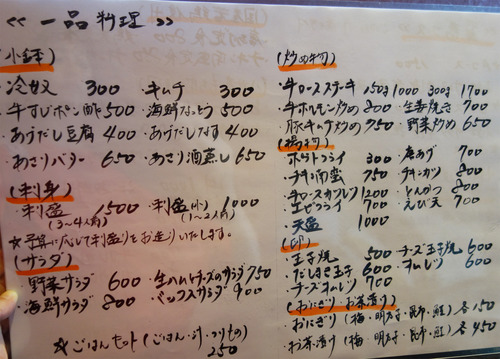 ≪ 一品料理 ≫
(小鉢)
・冷奴 300 ・キムチ 300
・牛すじポン酢 500 ・海鮮なっとう 500
・あげだし豆腐 400 ・あげだしなす 400
・あさりバター 650 ・あさり酒蒸し 650
(刺身)
・刺盛 1500 ・刺盛(小) 1000
(3~4人前) (1~2人前)
★予算に応じて刺盛りをお造りいたします。
(サラダ)
・野菜サラダ 600 ・生ハムトチーズのサラダ 750
・海鮮サラダ 800 ・ミックスサラダ 900
☆ごはんセット(ごはん・汁・つけもの)
250
(炒め物)
・牛ロースステーキ 150g 1000 300g 1700
・牛ホルモン炒め 800 ・生姜焼き 700
・豚キムチ炒め 750 ・野菜炒め 650
(揚物)
・ポテトフライ 300 ・唐あげ 700
・チキン南蛮 750 ・チキンカツ 800
・牛ロースカツレツ 1200 ・とんかつ 800
・エビフライ 700 ・えび天 700
・天盛 1000
(卵)
・玉子焼 500 ・チーズ玉子焼 600
・だしまき玉子 600 ・オムレツ 600
・チーズオムレツ 700
(おにぎり・お茶漬け)
・おにぎり(梅・明太子・昆布・鮭) 各150
・お茶漬け(梅・明太子・昆布・鮭) 各450